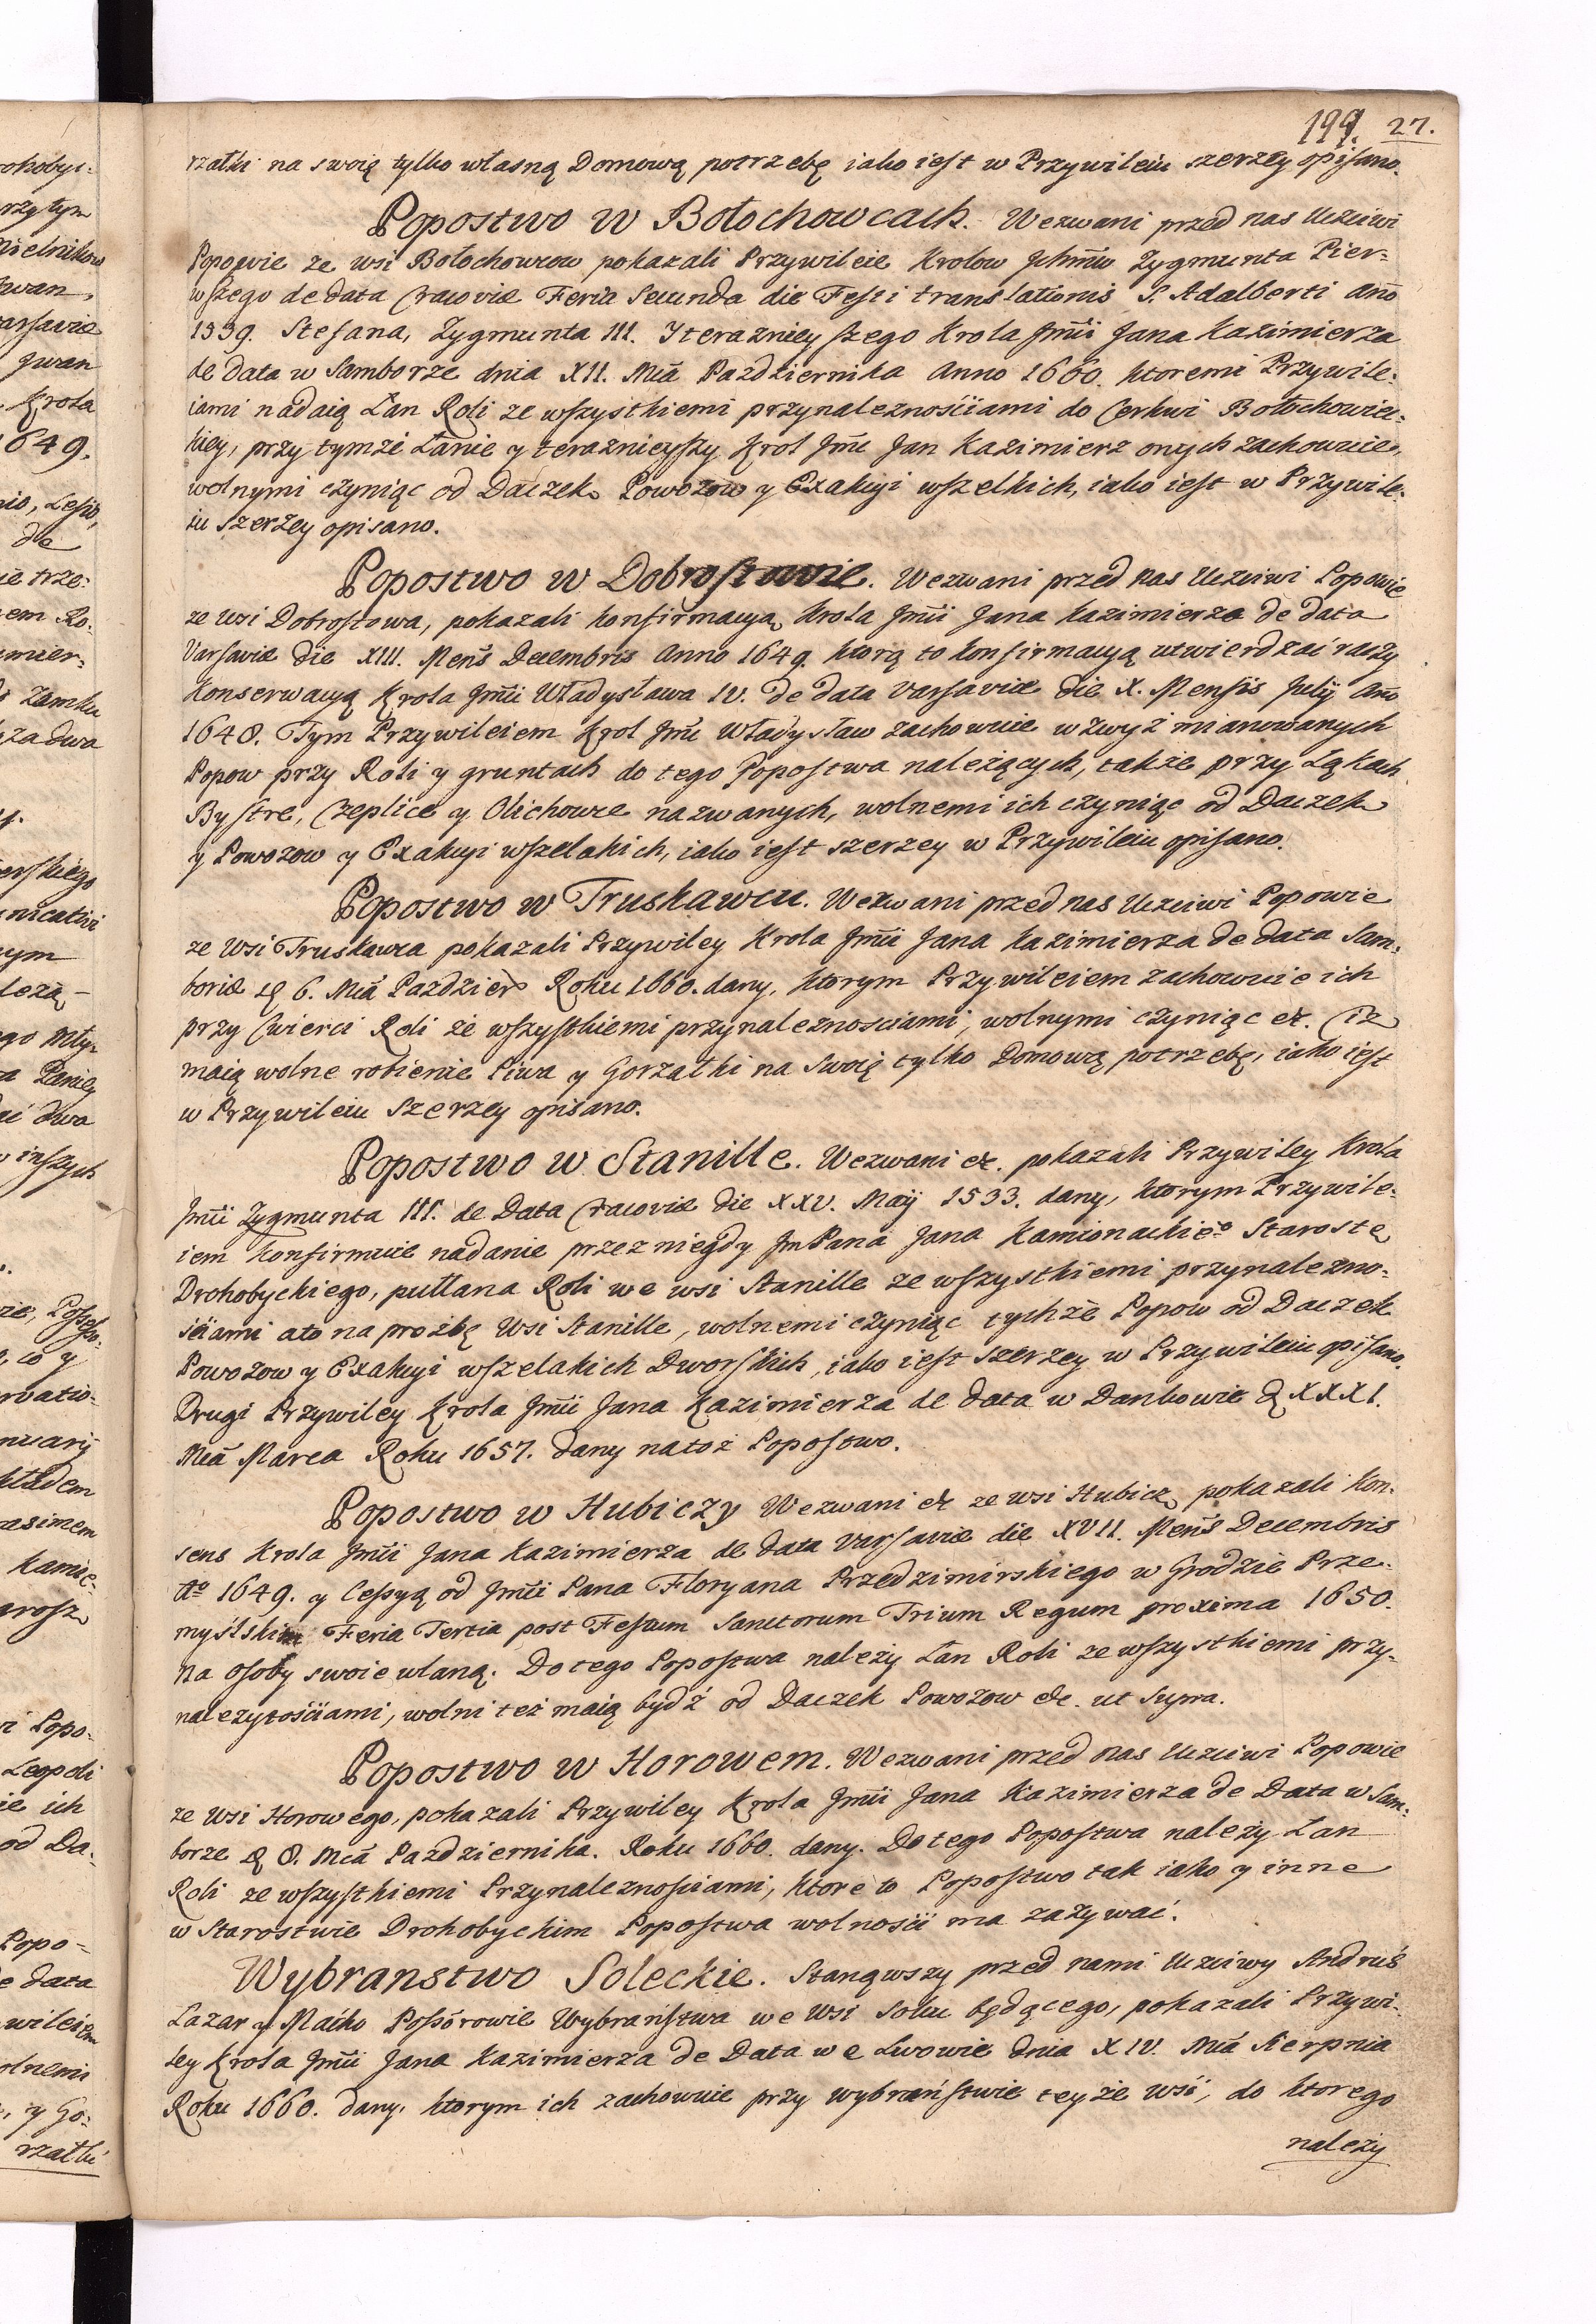 199. 27.
rzałki na swoią tylko własną Domową potrzebę iako iest w Przywileiu szerzey opisano.
Popostwo w Bołochowcach. Wezwani przed nas Uczciwi
Popowie ze wsi Bołochowcow pokazali Przywileie Krolow Ichmciw Zygmunta Pier-
wszego de data Cracoviæ Feria Secunda die Festi translationis S. Adalberti Año
1539. Stefana, Zygmunta III. Y teraznieyszego Krola Jmci Jana Kazimierza
de Data w Samborze dnia XII. Mcã Pazdziernika Anno 1660. ktoremi Przywile-
iami nadaią Łan Roli ze wszystkiemi przynaleznościami do Cerkwi Bołochowiec-
kiey, przy tymże Łanie y teraznieyszy Krol Jmc Jan Kazimierz onych zachowuie,
wolnymi czyniąc od Daczek Powozow y Exakcyi wszelkich, iako iest w Przywile-
iu szerzey opisano.
Popostwo w Dobrostowie. Wezwani przed nas Uczciwi Popowie
ze wsi Dobrostowa, pokazali konfirmacyą Krola Jmci Jana Kazimierza de data
Varsaviæ die XIII. Mens̃ Decembris Anno 1649. ktorą to konfirmacyą utwierdzać raczy
Konserwacyą Krola Jmci Władysława IV. de data Varsaviæ die X. Mensis Julij Año
1640. Tym Przywileiem Krol Jmc Władysław zachowuie wzwyż mianowanych
Popow przy Roli y gruntach do tego Popostwa należących, także przy Łąkach
Bystre, Czeplice y Olichowce nazwanych, wolnemi ich czyniąc od Daczek
y Powozow y Exakcyi wszelakich, iako iest szerzey w Przywileiu opisano.
Popostwo w Truskawcu. Wezwani przed nas Uczciwi Popowie
ze wsi Truskawca pokazali Przywiley Krola Jmci Jana Kazimierza de data Sam-
boriæ d 6. Mcã Pazdzier Roku 1660. dany, ktorym Przywileiem zachowuie ich
przy Cwierci Roli ze wszystkiemi przynaleznosciami, wolnymi czyniąc &. Ciz
maią wolne robienie Piwa y Gorzałki na swoię tylko Domową potrzebę, iako iest
w Przywileiu szerzey opisano.
Popostwo w Stanille. Wezwani &. pokazali Przywiley Krola
Jmci Zygmunta III. de Data Cracoviæ die XXV. Maij 1533. dany, ktorym Przywile-
iem konfirmuie nadanie przez niegdy JmPana Jana Kamionackie° Starostę
Drohobyckiego, pułłana Roli we wsi Stanille ze wszystkiemi przynalezno-
ściami ato na prozbę Wsi Stanille, wolnemi czyniąc tychże Popow od Daczek
Powozow y Exakcyi wszelakich Dworskich, iako iest szerzey w Przywileiu opisano.
Drugi Przywiley Krola Jmci Jana Kazimierza de data w Dankowie d XXXI.
Mcã Marca Roku 1657. dany natoż Popostwo.
Popostwo w Hubiczy Wezwani & ze wsi Hubicz, pokazali Kon-
sens Krola Jmci Jana Kazimierza de data Varsaviæ die XVII. Mens̃ Decembris
A° 1649. y Cessyą od Jmci Pana Floryana Przedzimirskiego w Grodzie Prze-
myślskim Feria Tertia post Festum Sanctorum Trium Regum proxima 1650.
na osoby swoie wlaną. Do tego Popostwa należy Łan Roli ze wszystkiemi przy-
nalezytościami, wolni też maią bydź od Daczek Powozow &c. ut Supra.
Popostwo w Horowem. Wezwani przed nas Uczciwi Popowie
ze wsi Horowego, pokazali Przywiley Krola Jmci Jana Kazimierza de Data w Sam-
borze d 8. Mcã Pazdziernika. Roku 1660. dany. Do tego Popostwa należy Łan
Roli ze wszystkiemi Przynaleznosciami, ktore to Popostwo tak iako y inne
w Starostwie Drohobyckim Popostwa wolności ma zażywać.
Wybranstwo Soleckie. Stanąwszy przed nami Uczciwy Andruś
Lazar y Maćko Possorowie WybrańStwa we Wsi Solcu będącego, pokazali Przywi-
ley Krola Jmci Jana Kazimierza de Data we Lwowie dnia XIV. Mcã Sierpnia
Roku 1660. dany, ktorym ich zachowuie przy wybraństwie teyże wsi, do ktorego
należy